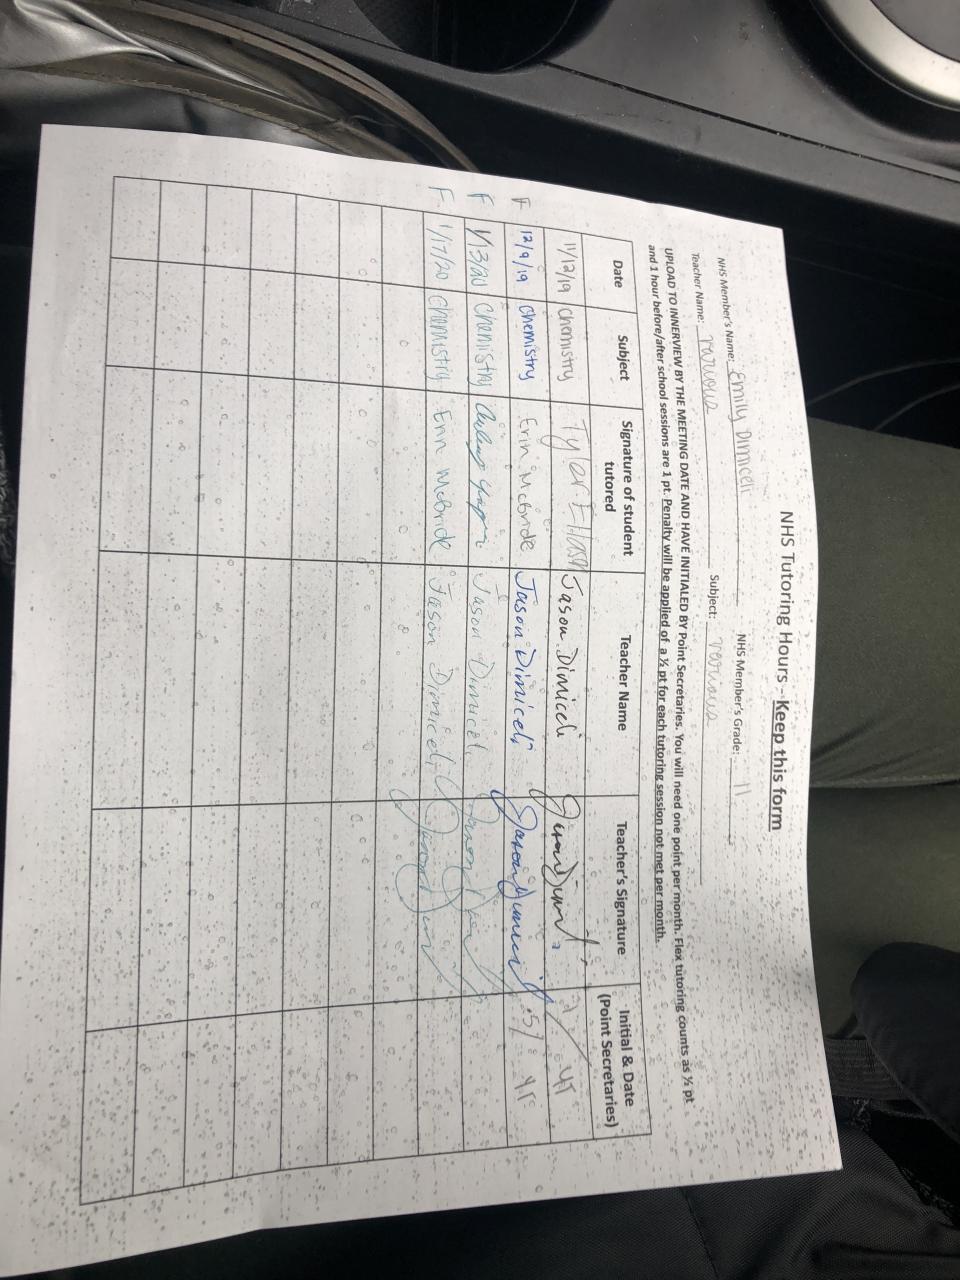 NHS Tutoring Hours - Keep this form
NHS Member's Name: Emily Dimiceli NHS Member's Grade: 11
Teacher Name: various Subject: various
UPLOAD TO INNERVIEW BY THE MEETING DATE AND HAVE INITIALED BY Point Secretaries. You will need one point per month. Flex tutoring counts as ½ pt
and 1 hour before/after school sessions are 1 pt. Penalty will be applied of a ½ pt for each tutoring session not met per month.
Date Subject Signature of student tutored Teacher Name Teacher's Signature Initial & Date (Point Secretaries)
11/12/19 chemistry Tyler Jason Dimiceli
F 12/9/19 chemistry Erin McBride Jason Dimiceli Jason Dimiceli .5/
F 1/13/20 chemistry Jason Dimiceli
F 1/17/20 Chemistry Erin McBride Jason Dimiceli